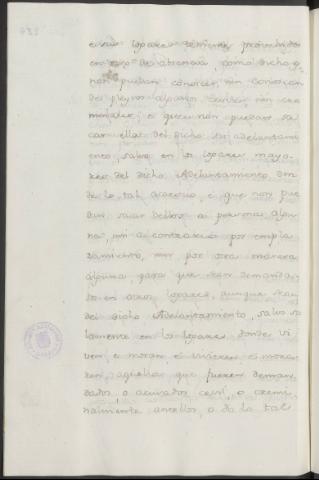 e sus logares tenientes
en caso de ausencia, como dicho es
non puedan conoscer, nin conoscan
de pleytos algunos ceviles nin cre
minales, e que non puedan sa
car ellas del dicho su adelantami
ento, salvo en los logares mayo
res del dicho Adelantamiento don
de lo tal acaesció, e que non pue
dan sacar dellos a persona algu
na, nin a contrario por empla
zamiento, nin por otra manera
alguna, para que sean demanda
do en otros logares, aunque sean
del dicho Adelantamiento, salvo so
lamente en los logares donde vi
ven, e moran, e vivieren e mora
ren, aquellos que fueren deman
dados, o acusados cevil, o cremi
nalmente antellos, o do la tal